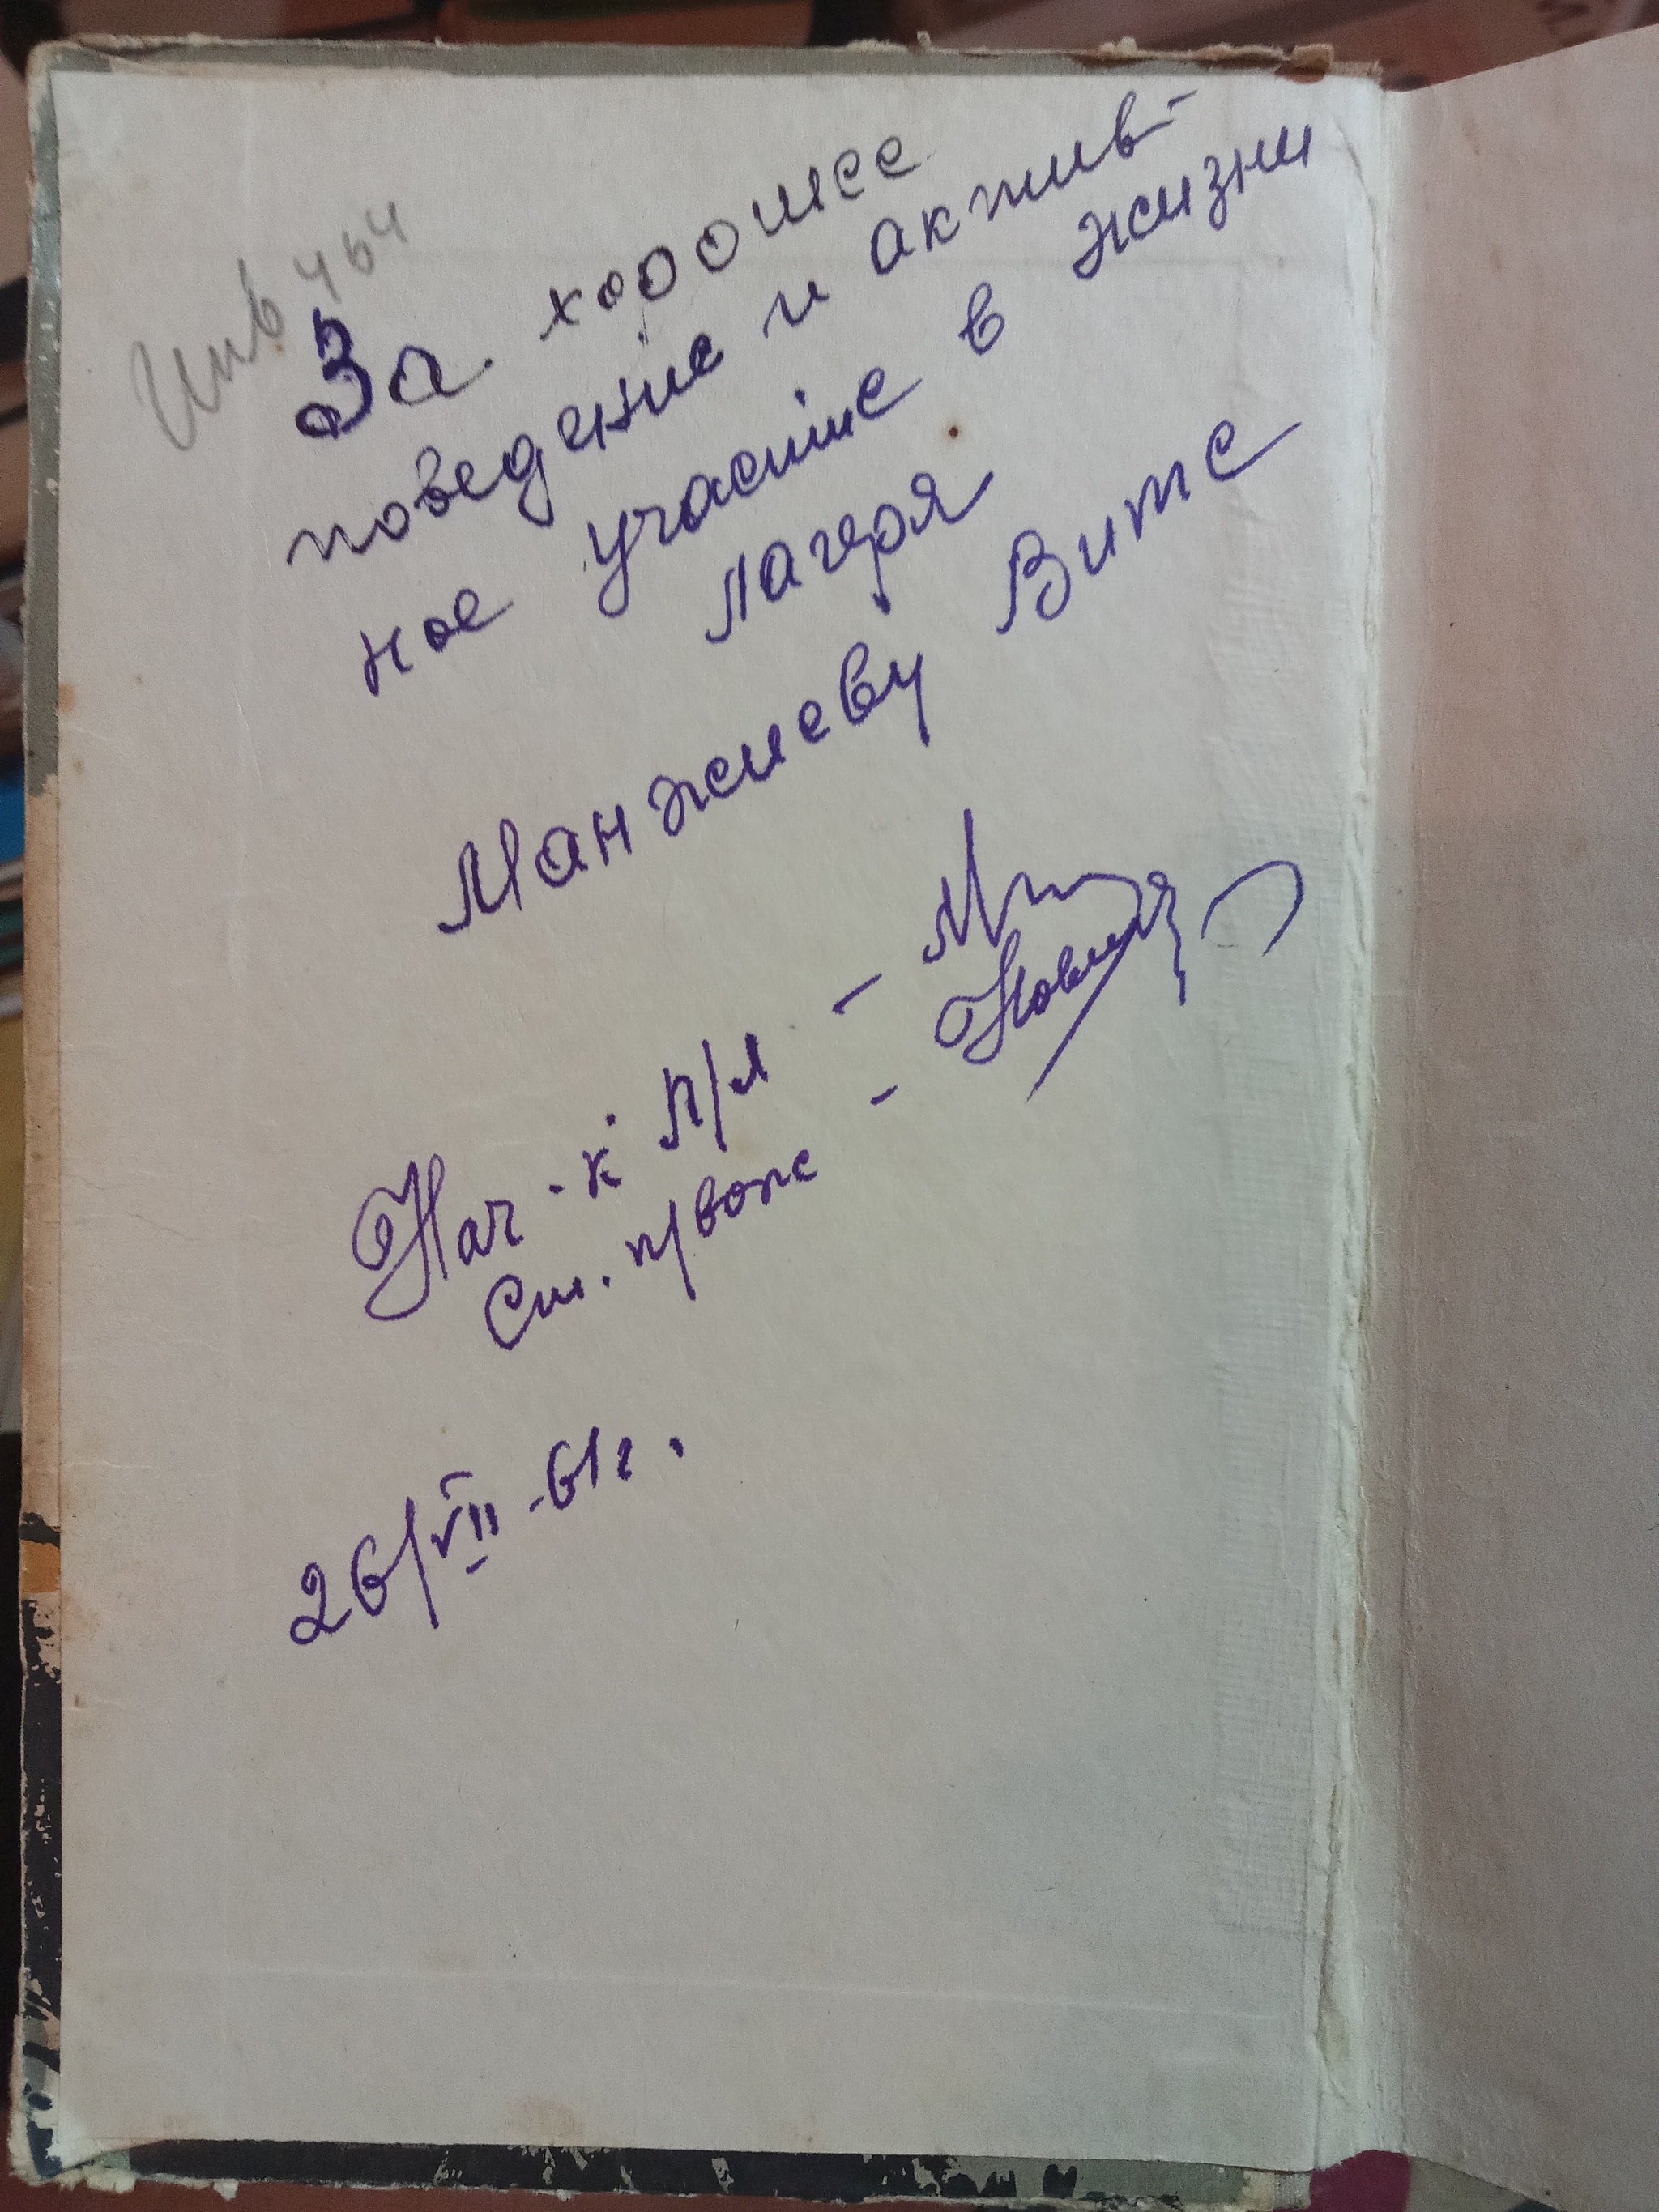 Инв 464
За хорошее
поведение и актив-
ное участие в жизни
лагеря
Манжиеву Вите
Нач-к п/л -
Ст. п/вож -
26/VII-61г.